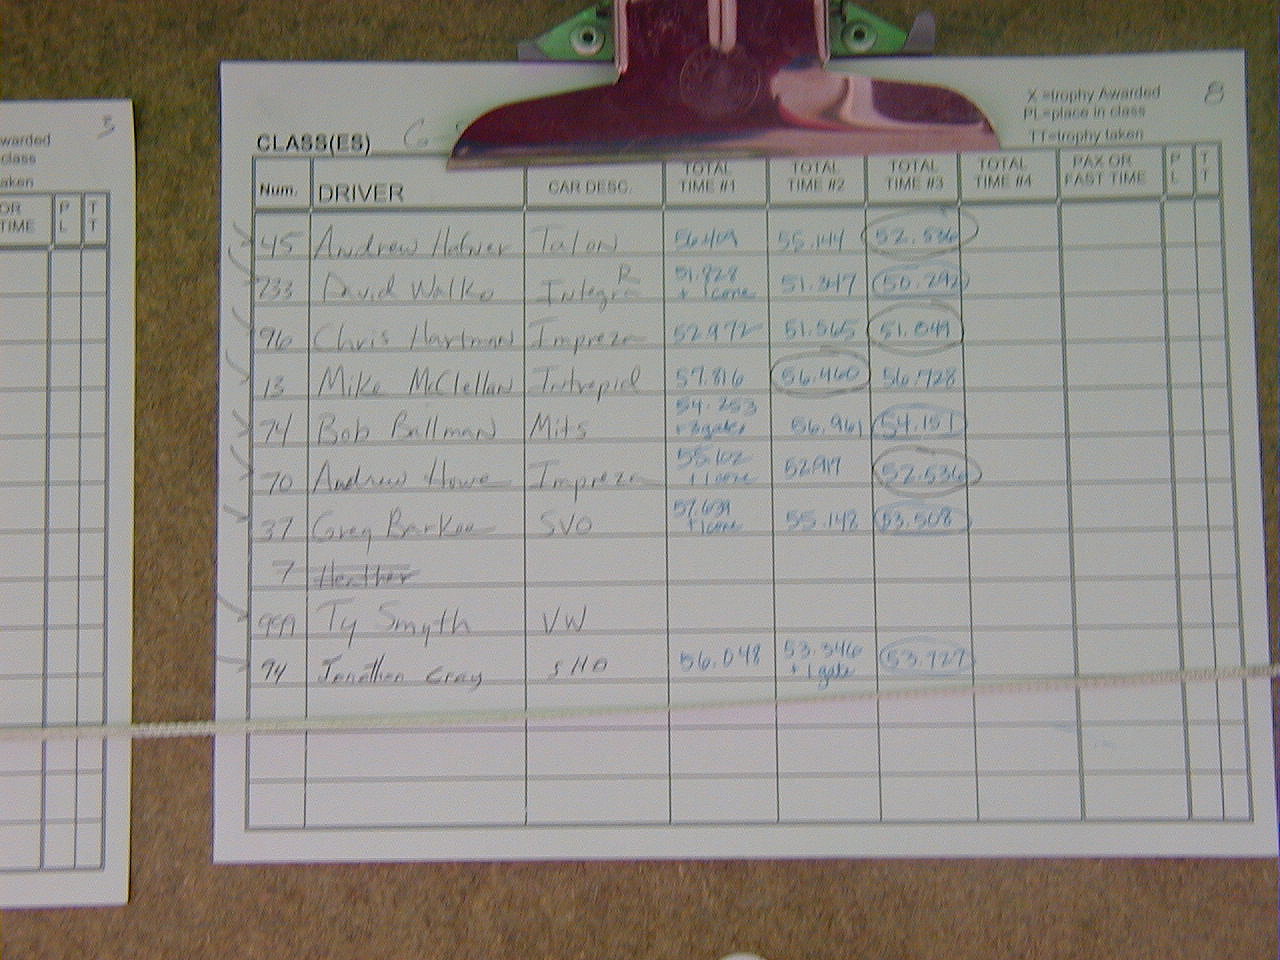 warded
class
aken
3
OR
TIME
P
L
T
T
X =trophy Awarded
PL=place in class
TT=trophy taken
8
CLASS(ES) G
Num. DRIVER CAR DESC. TOTAL TIME #1 TOTAL TIME #2 TOTAL TIME #3 TOTAL TIME #4 PAX OR FAST TIME P L T T
45 Andrew Hafner Talon 56.409 55.144 52.536
733 David Walko Integra R 51.828 + 1 cone 51.347 50.292
96 Chris Hartman Impreza 52.972 51.565 51.049
13 Mike McClellan Intrepid 57.816 56.460 56.728
74 Bob Ballman Mits 54.253 56.961 54.151
70 Andrew Howe Impreza 55.102 + 1 cone 52.919 52.536
37 Greg Barkee SVO 57.639 + 1 cone 55.148 53.508
7 Heather
999 Ty Smyth VW
94 Jonathan Gray SHO 56.048 53.346 + 1 gate 53.727